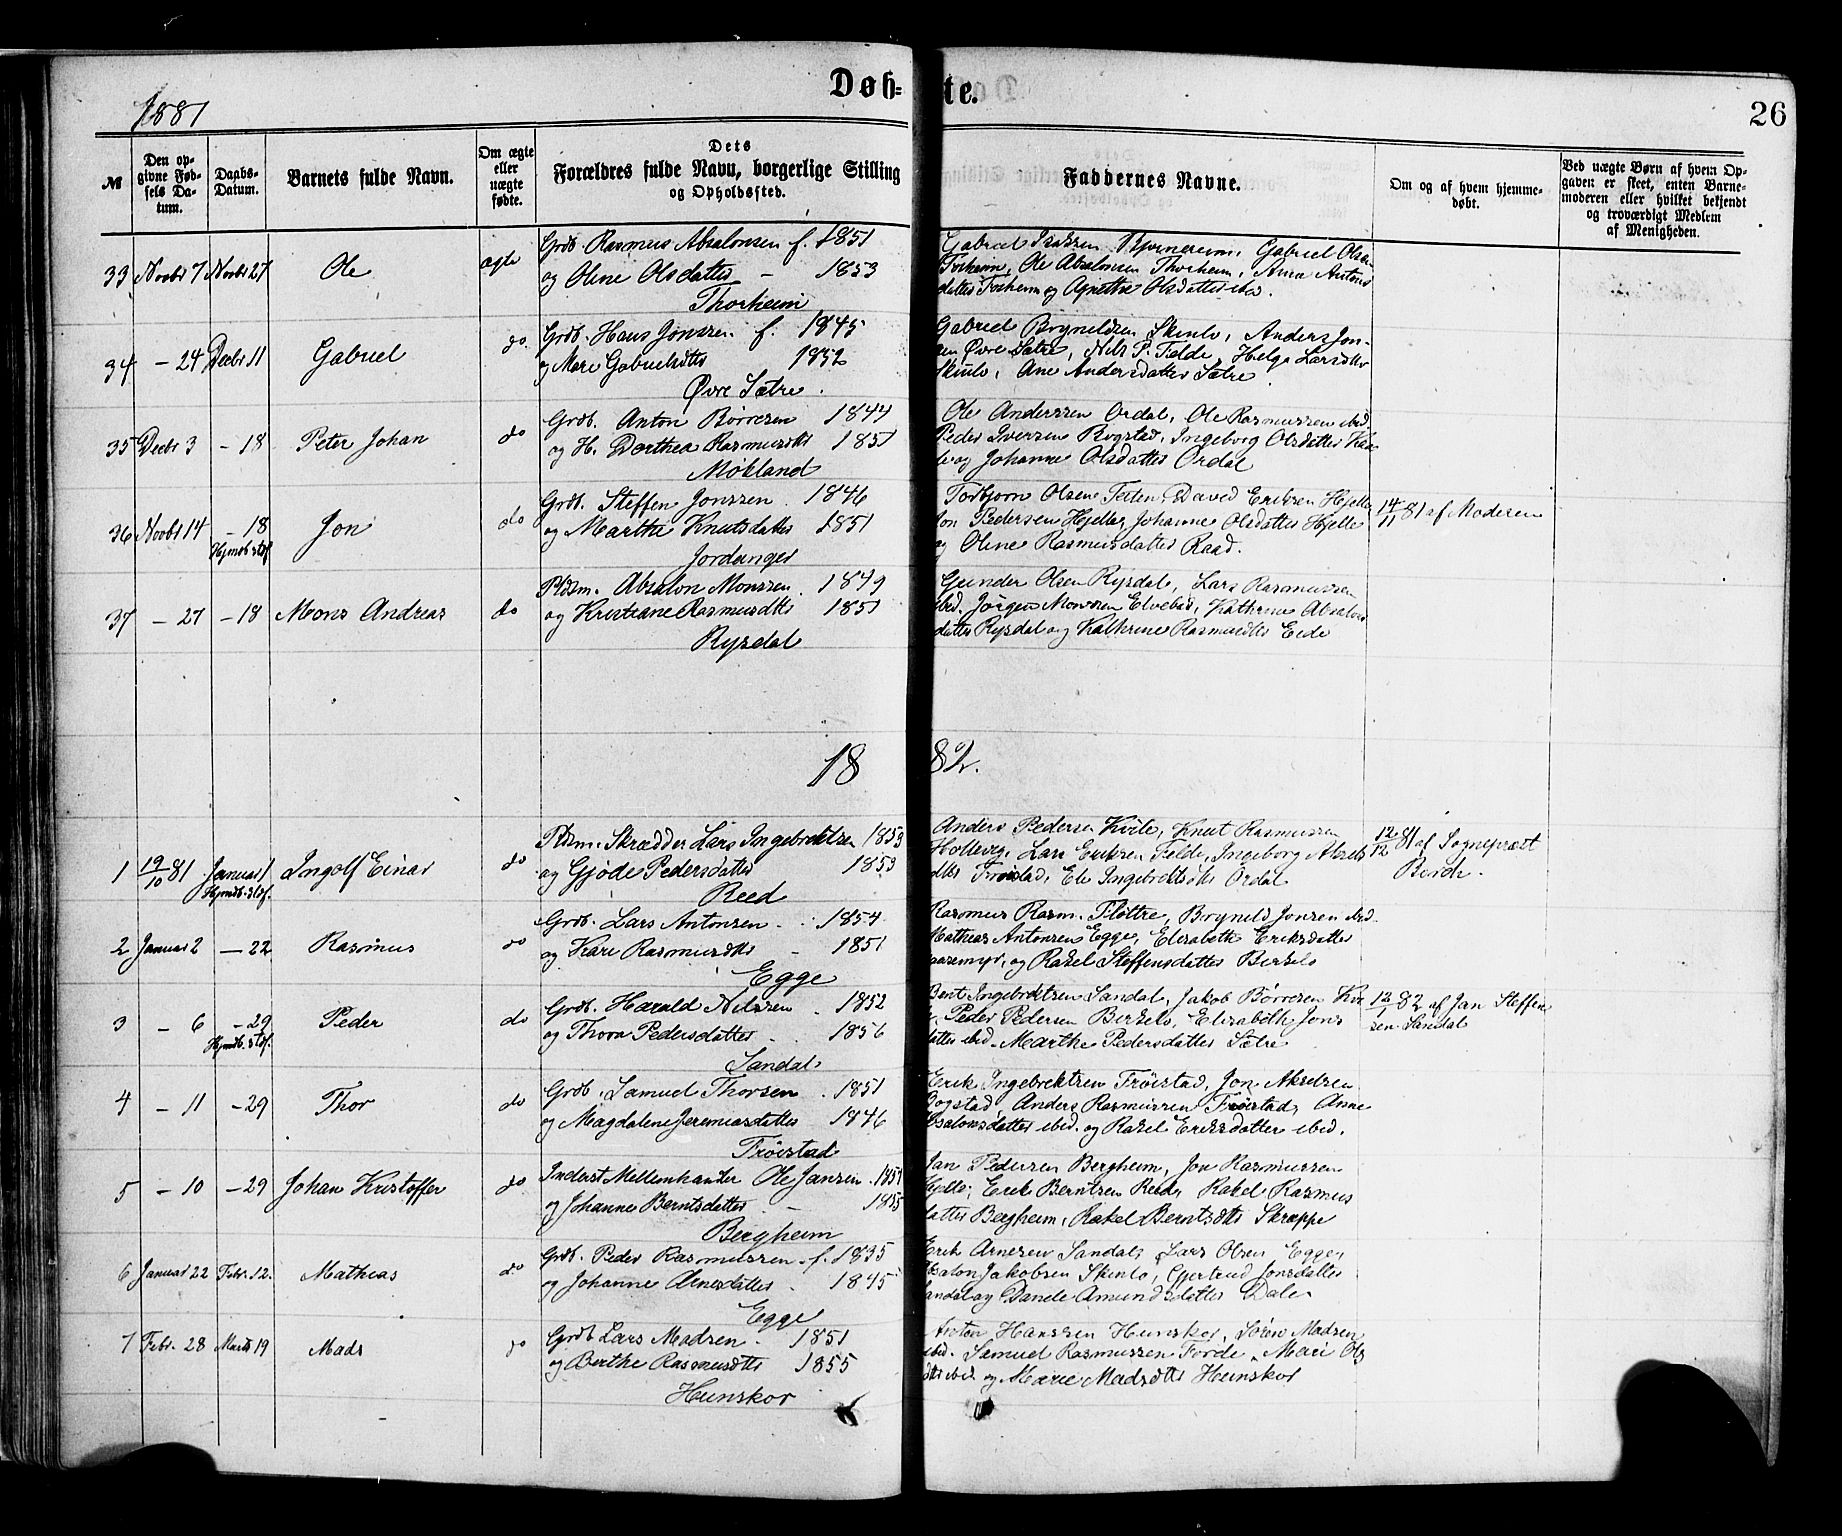 1881
Døb-te.
26
№
Den opgivne Fødsels Datum.
Daabs-Datum.
Barnets fulde Navn.
Om ægte eller uægte fødte.
Dets Forældres fulde Navn, borgerlige Stilling og Opholdssted.
Faddernes Navne.
Om og af hvem hjemmedøbt.
Ved uægte Børn af hvem Opgaven er skeet, enten Barnemoderen eller hvilket bekjendt og troværdigt Medlem af Menigheden.
33 Novbr 7 Novbr 27 Ole ægte
Grdb. Rasmus Absalonsen f. 1851
og Oline Olsdatter - 1853
Thorheim
Gabriel Isaksen Bjørnereim, Gabriel Olsen
Torheim, Ole Absalonsen Thorheim, Anna Antons
datter Torheim og Agnethe Olsdatter ibd.
34 - 24 Decbr 11 Gabriel do
Grdb. Hans Jonssen f. 1845
og Mari Gabrielsdtr 1852
Øvre Sætre.
Gabriel Brynildsen Skinlo, Anders Jon-
sen Øvre Sætre, Nils P. Felde, Helga Larsdtr
Skinlo, Ane Andersdatter Sætre
35 Decbr 3 - 18 Peter Johan do
Grdb. Anton Børresen 1844
og H. Dorthea Rasmusdtr 1851
Møkland
Ole Anderssen Ordal, Ole Rasmussen ibd.
Peder Iverssen Bogstad, Ingeborg Olsdatter
og Johanne Olsdatter Ordal
36 Novbr 14 - 18 Jon do
Hjmdb. stdf.
Grdb. Steffen Jonssen 1846
og Marthe Knutsdatter 1851
Jordanger
Torbjørn Olsen Feten, David Eriksen Hjelle,
Jon Pedersen Hjelle, Johanne Olsdatter Hjelle
og Oline Rasmusdatter Raad.
14/11 81 af Moderen
37 - 27 - 18 Mons Andreas do
Pldsm. Absalon Monssen 1849
og Kristiane Rasmusdtr 1851
Rysdal
Gunder Olsen Rysdal, Lars Rasmussen
ibd. Jørgen Monssen Elvebø, Kathrine Absalons
datter Rysdal og Kathrine Rasmusdtr Eide
1882.
1 19/10 81 Januar 1 Ingolf Einar do
Hjmdb. stdf.
Pldsm. Skrædder Lars Ingebrektsen 1853
og Gjøde Pedersdatter 1853
Reed
Anders Pedersen Kvile, Knut Rasmussen
Hollevig, Lars Eriksen Felde, Ingeborg Aksels
dtr Frøistad, Eli Ingebrektsdtr Ordal
12/12 81 af Sogneprest
2 Januar 2 - 22 Rasmus do
Grdb. Lars Antonsen 1854
og Kari Rasmusdtr - 1851
Egge
Rasmus Rasm. Fløttre, Brynild Jonsen ibd.
Mathias Antonsen Egge, Elisabeth Eriksdatter
og Rakel Steffensdatter Birkelo
3 - 6 - 29 Peder do
Hjmdb. stdf.
Grdb. Harald Nilssen 1852
og Thora Pedersdatter 1856
Sandal
Bent Ingebrektsen Sandal, Jakob Børresen
Peder Pedersen Birkelo, Elisabeth Jons
datter ibid. Marthe Pedersdatter Sætre
12/1 82 af Jan Steffen
sen Sandal
4 - 11 - 29 Thor do
Grdb. Samuel Thorsen 1851
og Magdalene Jeremiasdatter 1846
Frøistad
Erik Ingebrektsen Frøistad, Jon Akselsen
Bogstad, Anders Rasmussen Frøistad, Anne
Absalonsdatter ibid. og Rakel Eriksdatter ibid.
5 - 10 - 29 Johan Kristoffer do
Inderst Mellemhandler Ole Jansen 1851
og Johanne Berntsdatter - 1855
Bergheim
Jan Pedersen Bergheim, Jon Rasmussen
Hjelle, Erik Berntsen Reed, Rakel Rasmus
datter Bergheim, Rakel Berntsdtr Skrappe
6 Januar 22 Febr. 12. Mathias do
Grdb. Peder Rasmussen f. 1835
og Johanne Arnesdatter 1845
Egge
Erik Arnesen Sandal, Lars Olsen Egge,
Absalon Jakobsen Skinlo, Gjertrud Jonsdatter
Sandal og Danele Amundsdatter Dale
7 Febr. 28 Marts 19 Mads do
Grdb Lars Madsen 1851
og Berthe Rasmusdtr 1855
Hunskor
Anton Hanssen Hunskor, Søren Madsen
ibid. Samuel Rasmussen Førde, Mari Ols
dtr ibid og Marie Madsdtr Hunskor